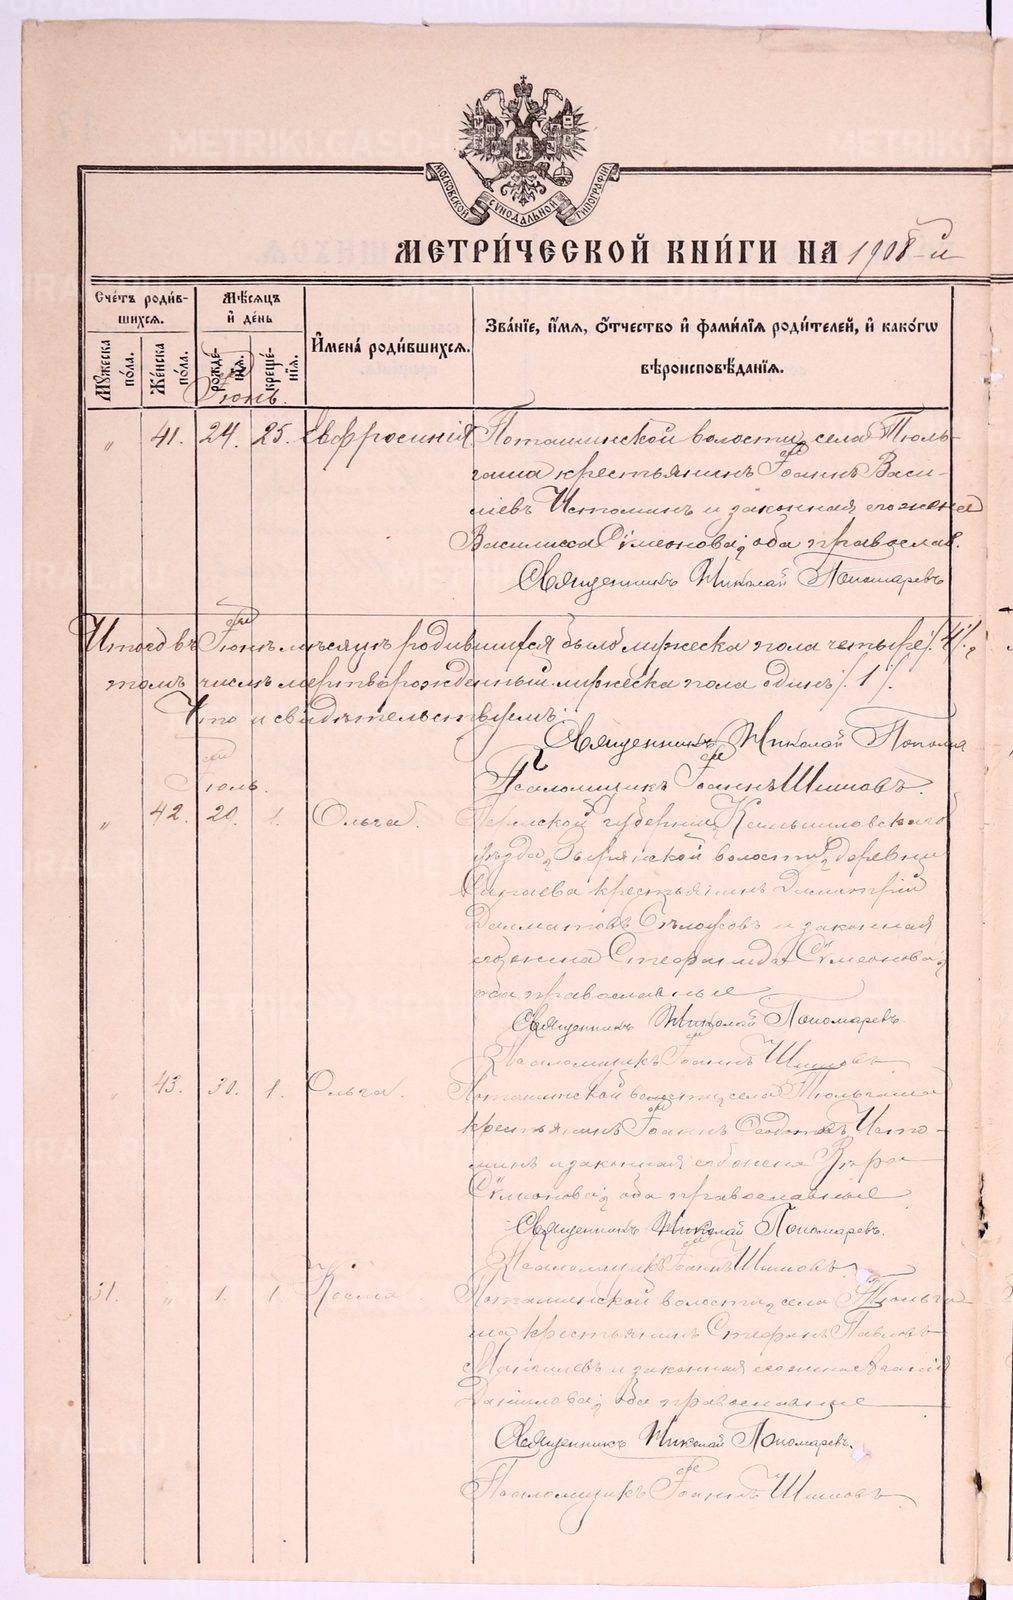 МОСКОВСКОЙ СѴНОДАЛЬНОЙ ТИПОГРАФІИ
МЕТРИ́ЧЕСКОЙ КНИ́ГИ НА 1908-й
Сче́тъ роди́в-шихсѧ.
Мѣ́сѧцъ и҆ де́нь
И҆мена̀ роди́вшихсѧ.
Зва́нїе, и҆́мѧ, ѻ҆́тчество и҆ фами́лїѧ роди́телей, и҆ како́гѡ
вѣроисповѣ́данїѧ.
Мꙋ́жеска по́ла.
Же́нска по́ла.
рожде́нїѧ.
креще́нїѧ.
Іюнь.
" 41. 24. 25. Евфросинія Поташинской волости, села Тюль-
гаша крестьянинъ Іоаннъ Васи-
ліевъ Истоминъ и законная его жена
Василисса Сѵмеонова; оба православ.
Священникъ Николай Пономаревъ
Итого въ Іюнѣ мѣсяцѣ родившихся было мужеска пола четыре /4/,
томъ числѣ мертворожденный мужеска пола одинъ /1/.
Что и свидѣтельствуемъ:
Священникъ Николай Понома
Псаломщикъ Іоаннъ Шишовъ.
Іюль.
" 42. 20. 1. Ольга. Пермской губерніи, Камышловскаго
уѣзда, волости, деревни
крестьянинъ Димитрій
Далматовъ Бѣлоусовъ и законная
его жена Стефанида Сѵмеонова;
оба православные
Священникъ Николай Пономаревъ.
Псаломщикъ Іоаннъ Шишовъ
" 43. 30. 1. Ольга. Поташинской волости, села Тюльгаша
крестьянинъ Іоаннъ Исто-
минъ и законная его жена Вѣра
Сѵмеонова; оба православные
Священникъ Николай Пономаревъ.
Псаломщикъ Іоаннъ Шишовъ
31. " 1. 1. Косма. Поташинской волости, села Тюльга
ша крестьянинъ Стефанъ Павловъ
и законная его жена
Данилова; оба православные
Священникъ Николай Пономаревъ.
Псаломщикъ Іоаннъ Шишовъ
METRIKI.GASO-URAL.RU